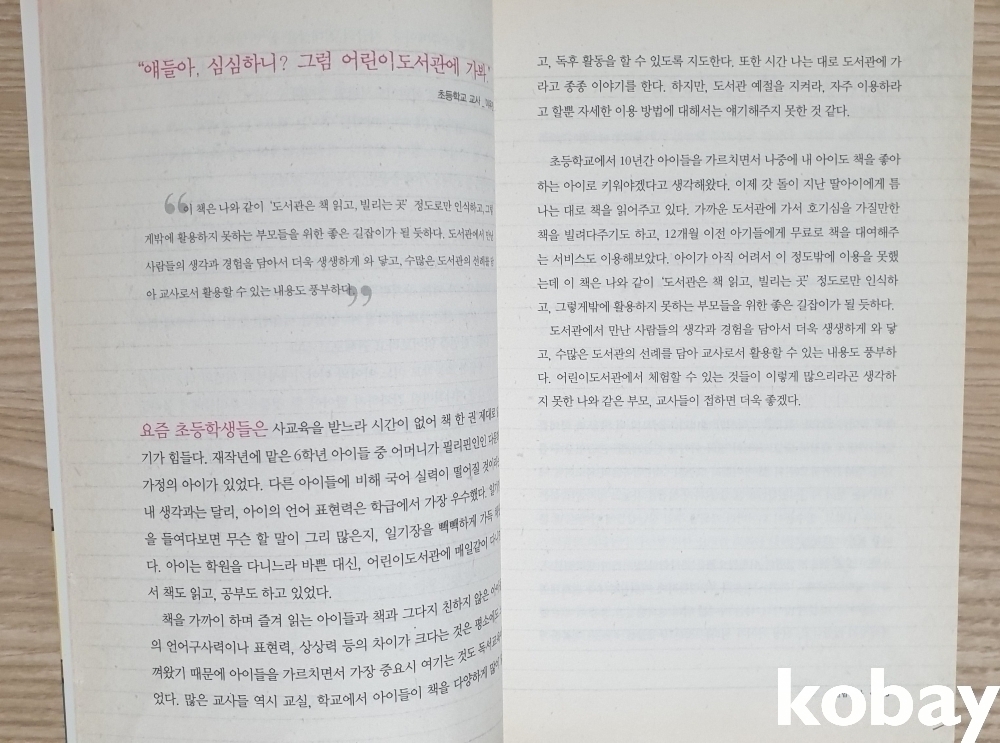 "애들아, 심심하니? 그럼 어린이도서관에 가봐."
초등학교 교사
이 책은 나와 같이 '도서관은 책 읽고, 빌리는 곳' 정도로만 인식하고, 그렇
게밖에 활용하지 못하는 부모들을 위한 좋은 길잡이가 될 듯하다. 도서관에서 만난
사람들의 생각과 경험을 담아서 더욱 생생하게 와 닿고, 수많은 도서관의 선례를 담
아 교사로서 활용할 수 있는 내용도 풍부하다.
요즘 초등학생들은 사교육을 받느라 시간이 없어 책 한 권 제대로
기가 힘들다. 재작년에 맡은 6학년 아이들 중 어머니가 필리핀인인 다문화
가정의 아이가 있었다. 다른 아이들에 비해 국어 실력이 떨어질 것이라는
내 생각과는 달리, 아이의 언어 표현력은 학급에서 가장 우수했다. 일기장
을 들여다보면 무슨 할 말이 그리 많은지, 일기장을 빽빽하게 가득
다. 아이는 학원을 다니느라 바쁜 대신, 어린이도서관에 매일같이
서 책도 읽고, 공부도 하고 있었다.
책을 가까이 하며 즐겨 읽는 아이들과 책과 그다지 친하지 않은
의 언어구사력이나 표현력, 상상력 등의 차이가 크다는 것은 평소에도
껴왔기 때문에 아이들을 가르치면서 가장 중요시 여기는 것도 독서교육
었다. 많은 교사들 역시 교실, 학교에서 아이들이 책을 다양하게 많이
고, 독후 활동을 할 수 있도록 지도한다. 또한 시간 나는 대로 도서관에 가
라고 종종 이야기를 한다. 하지만, 도서관 예절을 지켜라, 자주 이용하라
고 할뿐 자세한 이용 방법에 대해서는 얘기해주지 못한 것 같다.
초등학교에서 10년간 아이들을 가르치면서 나중에 내 아이도 책을 좋아
하는 아이로 키워야겠다고 생각해왔다. 이제 갓 돌이 지난 딸아이에게 틈
나는 대로 책을 읽어주고 있다. 가까운 도서관에 가서 호기심을 가질만한
책을 빌려다주기도 하고, 12개월 이전 아기들에게 무료로 책을 대여해주
는 서비스도 이용해보았다. 아이가 아직 어려서 이 정도밖에 이용을 못했
는데 이 책은 나와같이 '도서관은 책 읽고, 빌리는 곳' 정도로만 인식하
고, 그렇게밖에 활용하지 못하는 부모들을 위한 좋은 길잡이가 될 듯하다.
도서관에서 만난 사람들의 생각과 경험을 담아서 더욱 생생하게 와 닿
고, 수많은 도서관의 선례를 담아 교사로서 활용할 수 있는 내용도 풍부하
다. 어린이도서관에서 체험할 수 있는 것들이 이렇게 많으리라곤 생각하
지 못한 나와 같은 부모, 교사들이 접하면 더욱 좋겠다.
kobay